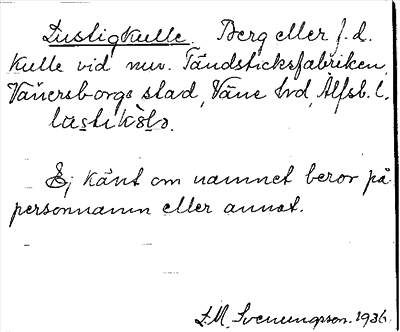 Lustigkulle. Berg eller f.d.
kulle vid nuv. Tändsticksfabriken,
Vänersborgs stad, Väne hrd, Älfsb. l.
Ej känt om namnet beror på
personnamn eller annat.
S.M. Svenungsson. 1936.